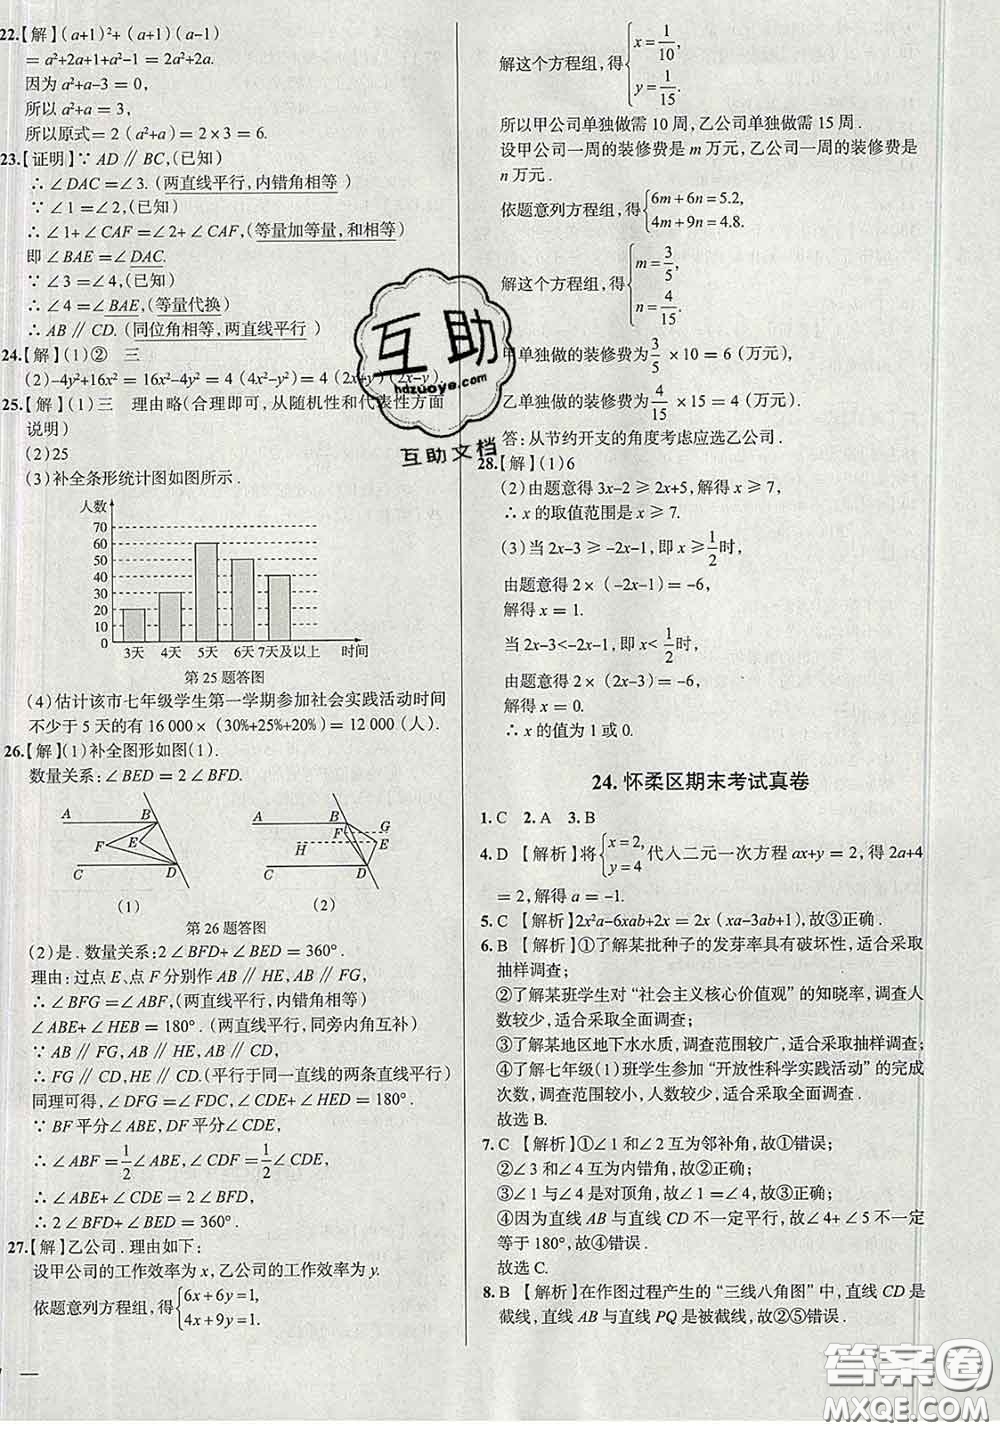 22.【解】(a+1)²+(a+1)(a-1)
=a²+2a+1+a²-1=2a²+2a.
因为 a²+a-3=0,
所以 a²+a=3,
所以原式=2(a²+a)=2×3=6.
23.【证明】∵ AD∥BC,(已知)
∴ ∠DAC=∠3.(两直线平行,内错角相等)
∵ ∠1=∠2,(已知)
∴ ∠1+∠CAF=∠2+∠CAF,(等量加等量,和相等)
即 ∠BAE=∠DAC.
∵ ∠3=∠4,(已知)
∴ ∠4=∠BAE,(等量代换)
∴ AB∥CD.(同位角相等,两直线平行)
24.【解】(1)② 三
(2)-4y²+16x²=16x²-4y²=4(4x²-y²)=4(2x+y)(2x-y).
25.【解】(1)三 理由略(合理即可,从随机性和代表性方面
说明)
(2)25
(3)补全条形统计图如图所示.
人数
70
60
50
40
30
20
10
0
3天 4天 5天 6天 7天及以上 时间
第25题答图
(4)估计该市七年级学生第一学期参加社会实践活动时间
不少于5天的有 16 000×(30%+25%+20%)=12 000(人).
26.【解】(1)补全图形如图(1).
数量关系:∠BED=2∠BFD.
A B
F E
C D
(1)
A B
F G
H E
C D
(2)
第26题答图
(2)是.数量关系:2∠BFD+∠BED=360°.
理由:过点 E、点 F 分别作 AB∥HE,AB∥FG,
∴ ∠BFG=∠ABF,(两直线平行,内错角相等)
∠ABE+∠HEB=180°.(两直线平行,同旁内角互补)
∵ AB∥FG,AB∥HE,AB∥CD,
∴ FG∥CD,HE∥CD.(平行于同一直线的两条直线平行)
同理可得,∠DFG=∠FDC,∠CDE+∠HED=180°.
∵ BF 平分∠ABE,DF 平分∠CDE,
∴ ∠ABF=1/2∠ABE,∠CDF=1/2∠CDE,
∴ ∠ABE+∠CDE=2∠BFD,
∴ 2∠BFD+∠BED=360°.
27.【解】乙公司.理由如下:
设甲公司的工作效率为 x,乙公司的工作效率为 y.
依题意列方程组,得{6x+6y=1,
4x+9y=1.
解这个方程组,得{x=1/10,
y=1/15.
所以甲公司单独做需10周,乙公司单独做需15周.
设甲公司一周的装修费是 m 万元,乙公司一周的装修费是
n 万元.
依题意列方程组,得{6m+6n=5.2,
4m+9n=4.8.
解这个方程组,得{m=3/5,
n=4/15.
甲单独做的装修费为3/5×10=6(万元),
乙单独做的装修费为4/15×15=4(万元).
答:从节约开支的角度考虑应选乙公司.
28.【解】(1)6
(2)由题意得 3x-2≥2x+5,解得 x≥7,
∴ x 的取值范围是 x≥7.
(3)当 2x-3≥-2x-1,即 x≥1/2时,
由题意得 2×(-2x-1)=-6,
解得 x=1.
当 2x-3<-2x-1,即 x<1/2时,
由题意得 2(2x-3)=-6,
解得 x=0.
∴ x 的值为 1 或 0.
24.怀柔区期末考试真卷
1. C 2. A 3. B
4. D 【解析】将{x=2,
y=4代人二元一次方程 ax+y=2,得 2a+4
=2,解得 a=-1.
5. C 【解析】2x²a-6xab+2x=2x(xa-3ab+1),故③正确.
6. B 【解析】①了解某批种子的发芽率具有破坏性,适合采取
抽样调查;
②了解某班学生对“社会主义核心价值观”的知晓率,调查人
数较少,适合采取全面调查;
③了解某地区地下水水质,调查范围较广,适合采取抽样调查;
④了解七年级(1)班学生参加“开放性科学实践活动”的完成
次数,调查范围较小,人数较少,适合采取全面调查.
故选 B.
7. C 【解析】①∠1 和∠2 互为邻补角,故①错误;
②∠3 和∠4 互为内错角,故②正确;
③∠1 与∠4 是对顶角,故③正确;
④因为直线 AB 与直线 CD 不一定平行,故∠4+∠5 不一定
等于 180°,故④错误.
故选 C.
8. B 【解析】在作图过程产生的“三线八角图”中,直线 CD 是
截线,直线 AB 与直线 PQ 是被截线,故②⑤错误.
互助
hdzuoye.com
互助文档
答案圈
MXQE.COM